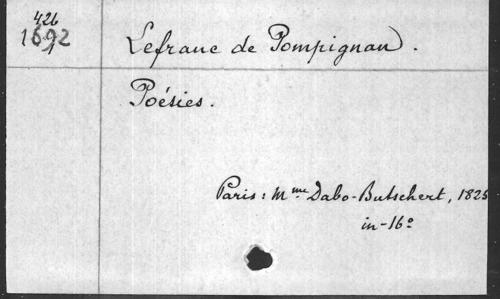 426
1692
Lefranc de Pompignan.
Poésies.
Paris: Mme Dabo-Butschert, 1825
in-16º